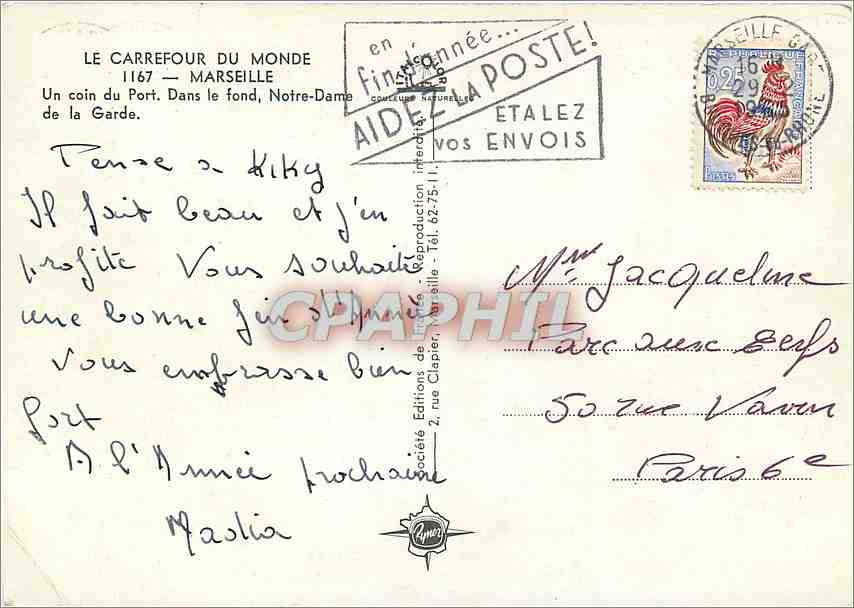 LE CARREFOUR DU MONDE
1167 — MARSEILLE
Un coin du Port. Dans le fond, Notre-Dame
de la Garde.
Pense a Kiky
Il fait beau et j'en
profite Vous souhaite
une bonne fin d'Année
Vous embrasse bien
fort
A l'Année prochaine
COULEURS NATURELLES
en
fin d'année...
AIDEZ LA POSTE!
ETALEZ
VOS ENVOIS
Société Editions de France - Reproduction interdite.
2, rue Clapier, Marseille - Tél. 62-75-11.
CPAPHIL
MARSEILLE GARE
16 H
29
0,25
Mme Jacqueline
Parc aux Cerfs
50 rue Vavin
Paris 6e